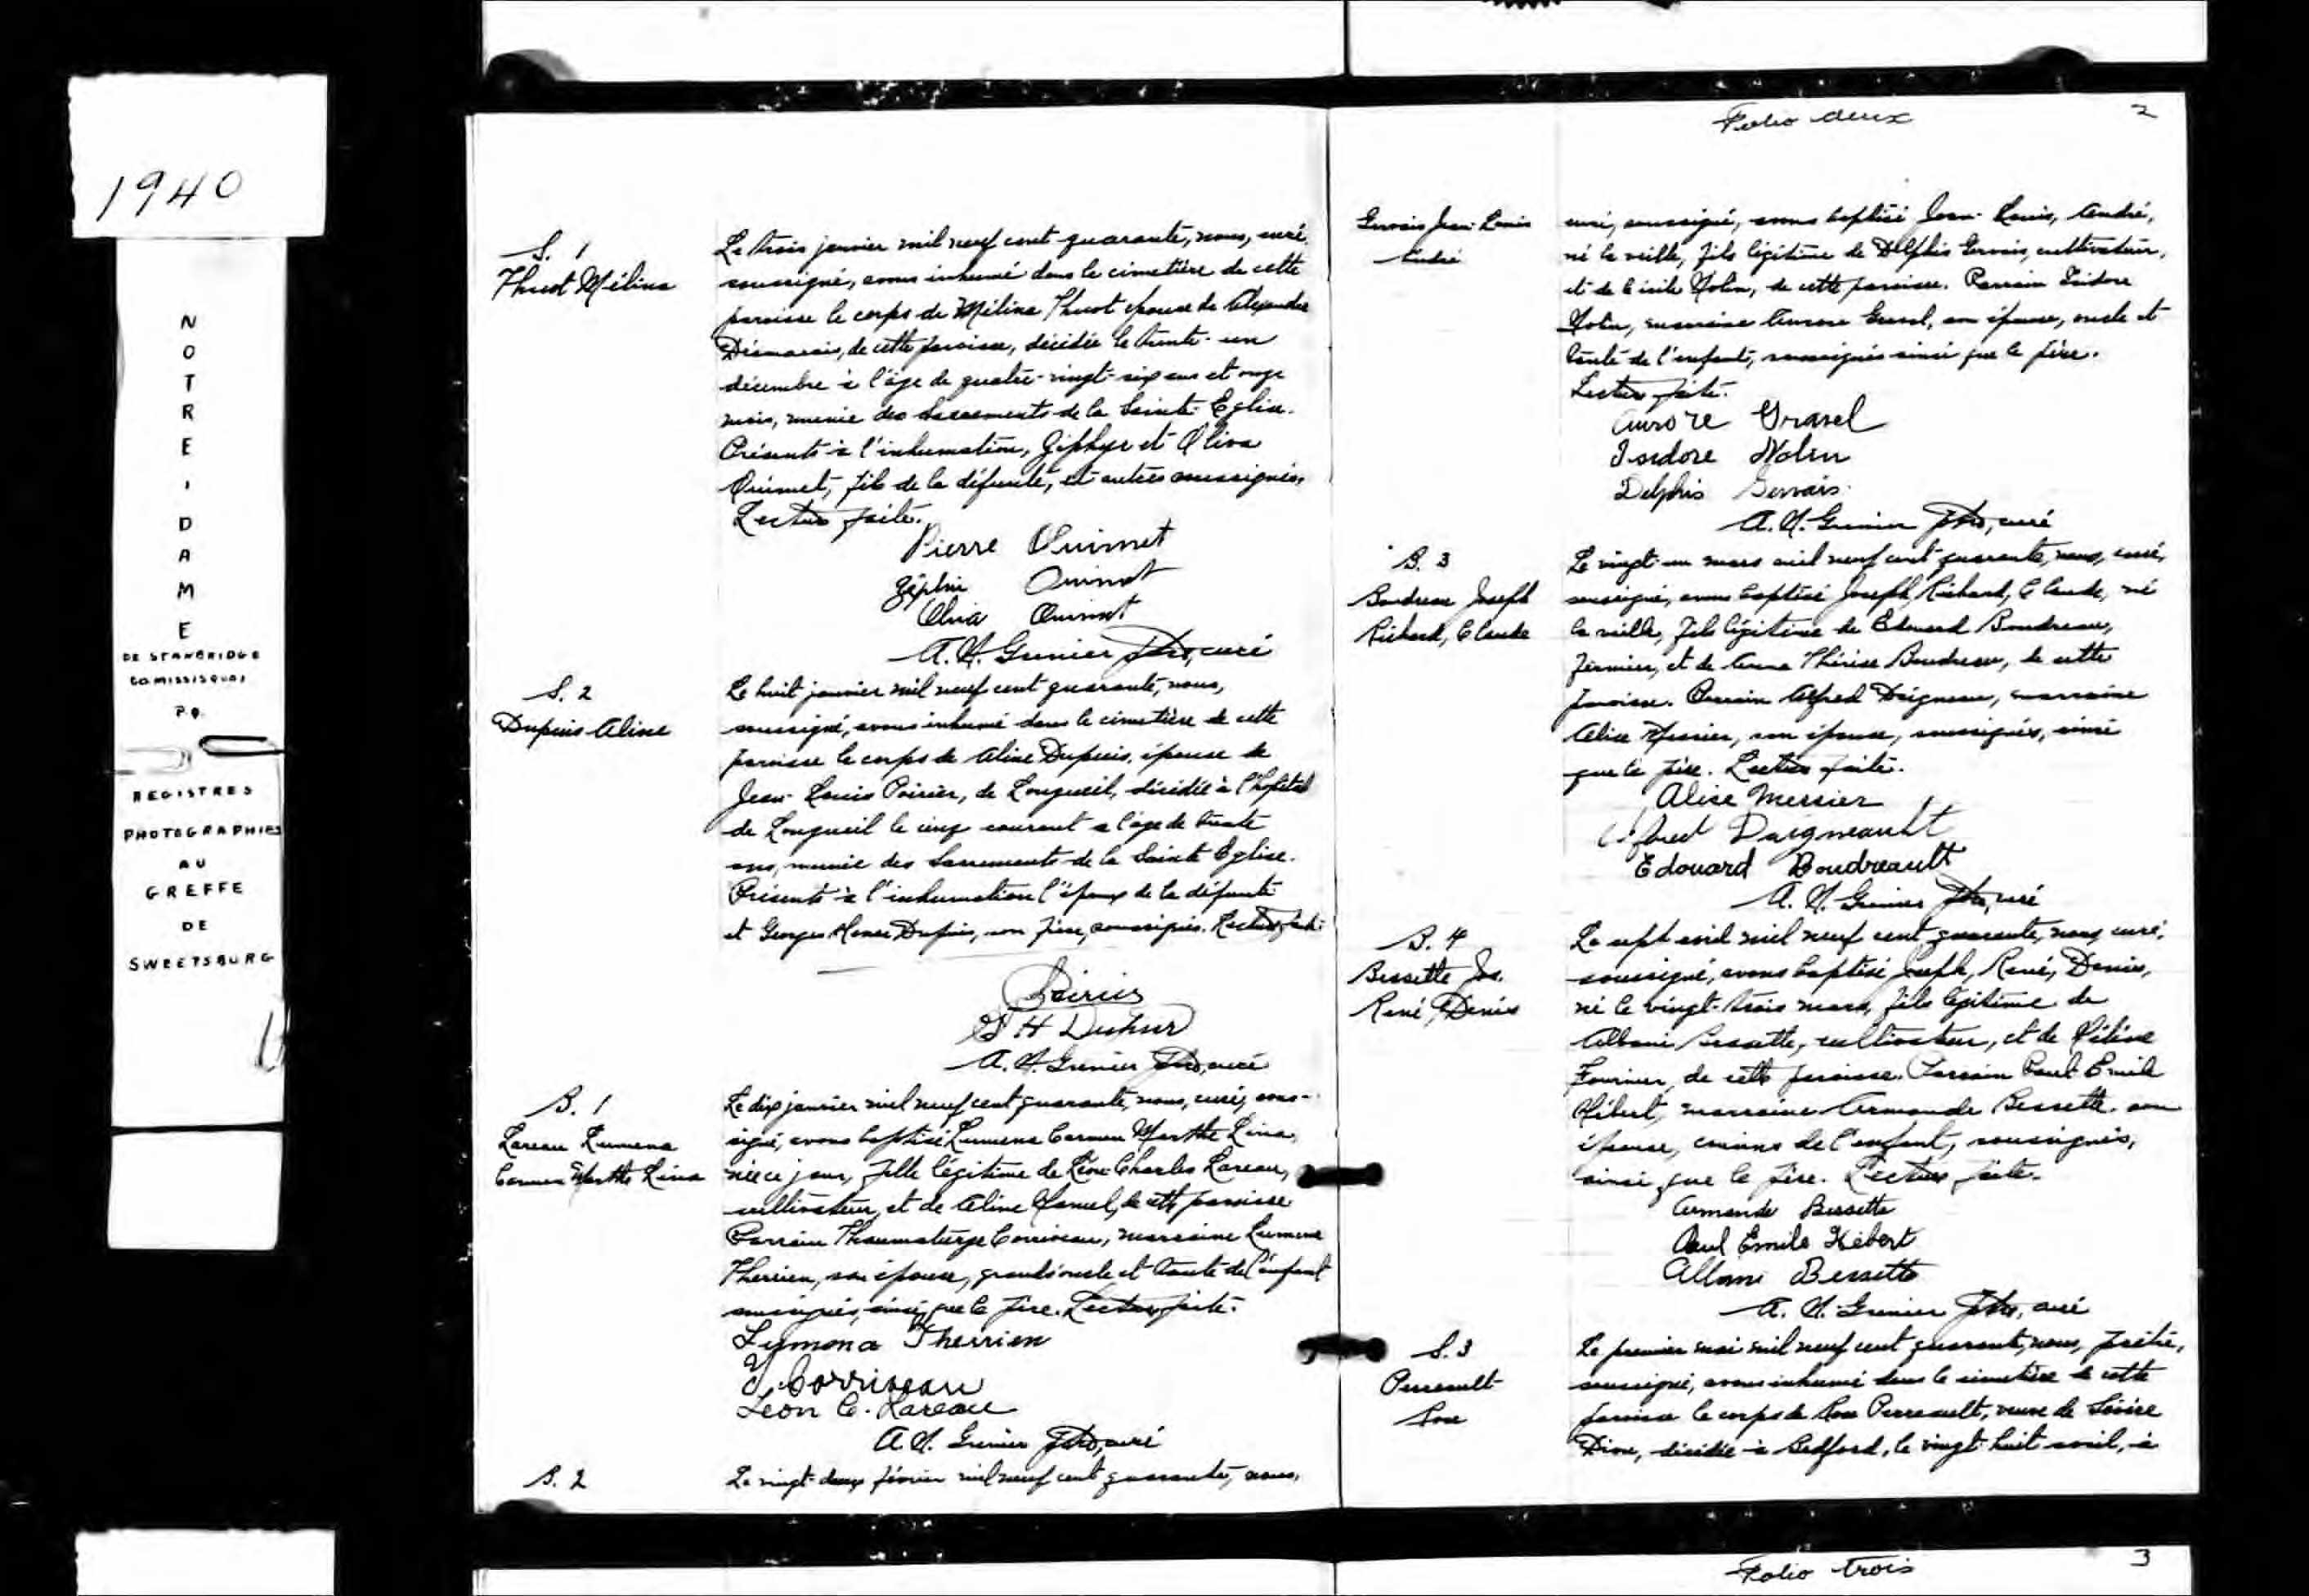 1940
NOTRE-DAME
DE STANBRIDGE
Co MISSISQUOI
P.Q.
REGISTRES
PHOTOGRAPHIES
AU
GREFFE
DE
SWEETSBURG
S. 1
Thuot Mélina
Le trois janvier mil neuf cent quarante, nous, curé,
soussigné, avons inhumé dans le cimetière de cette
paroisse le corps de Mélina Thuot épouse de Alexandre
Désmarais, de cette paroisse, décédée le trente-un
décembre à l'âge de quatre-vingt-six ans et onze
mois, munie des Sacrements de la Sainte-Eglise.
Présents à l'inhumation, Zéphyr et Oliva
Ouimet, fils de la défunte, et autres soussignés.
Lecture faite.
Pierre Ouimet
Zéphir Ouimet
Oliva Ouimet
A. H. Grenier Ptre, curé
S. 2
Dupuis Aline
Le huit janvier mil neuf cent quarante, nous,
soussigné, avons inhumé dans le cimetière de cette
paroisse le corps de Aline Dupuis, épouse de
Jean-Louis Poirier, de Longueuil, décédée à l'hopital
de Longueuil le cinq courant a l'âge de trente
ans, munie des Sacrements de la Sainte Eglise.
Présents à l'inhumation l'époux de la défunte
et Georges Dupuis, son père, soussignés. Lecture faite.
Poirier
G H Dupuis
A. H. Grenier Ptre, curé
B. 1
Lareau Lumena
Carmen Marthe Lina
Le dix janvier mil neuf cent quarante, nous, curé, sous-
signé, avons baptisé Lumena Carmen Marthe Lina,
née ce jour, fille légitime de Léon-Charles Lareau,
cultivateur, et de Aline Hamel, de cette paroisse
Parrain Thaumaturge Corriveau, marraine Lumena
Therrien, son épouse, grands oncle et tante de l'enfant
soussignés, ainsi que le père. Lecture faite.
Lumena Therrien
Corriveau
Leon C. Lareau
A. H. Grenier Ptre, curé
B. 2
Le vingt-deux février mil neuf cent quarante, nous,
Folio deux
2
Gervais Jean-Louis
André
curé, soussigné, avons baptisé Jean-Louis, André,
né la veille, fils légitime de Delphis Gervais, cultivateur,
et de Cécile Nolin, de cette paroisse. Parrain Isidore
Nolin, marraine Aurore Gravel, son épouse, oncle et
tante de l'enfant, soussignés ainsi que le père.
Lecture faite.
Aurore Gravel
Isidore Nolin
Delphis Gervais.
A. H. Grenier Ptre, curé
B. 3
Boudreau Joseph
Richard, Claude
Le vingt-un mars mil neuf cent quarante, nous, curé,
soussigné, avons baptisé Joseph, Richard, Claude, né
la veille, fils légitime de Edouard Boudreau,
fermier, et de Anna Thérèse Boudreau, de cette
paroisse. Parrain Alfred Daigneau, marraine
Alice Messier, son épouse, soussignés, ainsi
que le père. Lecture faite.
Alice Messier
Alfred Daigneault
Edouard Boudreault
A. H. Grenier Ptre, curé
B. 4
Bessette Jos.
René, Denis
Le sept avril mil neuf cent quarante, nous, curé,
soussigné, avons baptisé Joseph, René, Denis,
né le vingt-trois mars, fils légitime de
Albani Bessette, cultivateur, et de
Fournier, de cette paroisse. Parrain Paul Emile
Hébert, marraine Armande Bessette son
épouse, cousins de l'enfant, soussignés,
ainsi que le père. Lecture faite.
Armande Bessette
Paul Emile Hébert
Albani Bessette
A. H. Grenier Ptre, curé
S. 3
Perreault
Le premier mai mil neuf cent quarante, nous, prêtre,
soussigné, avons inhumé dans le cimetière de cette
paroisse le corps de Perreault, veuve de Sévère
Dion, décédée à Bedford, le vingt-huit avril, à
Folio trois
3